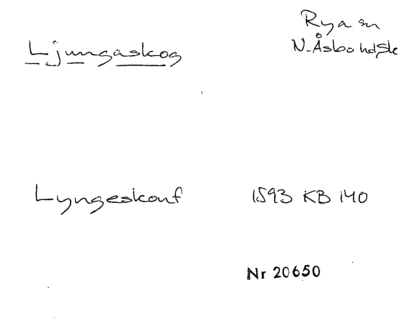 Ljungaskog
Rya sn
N. Åsbo hd, Sk
Lyngeskouf
1593 KB 140
Nr 20650